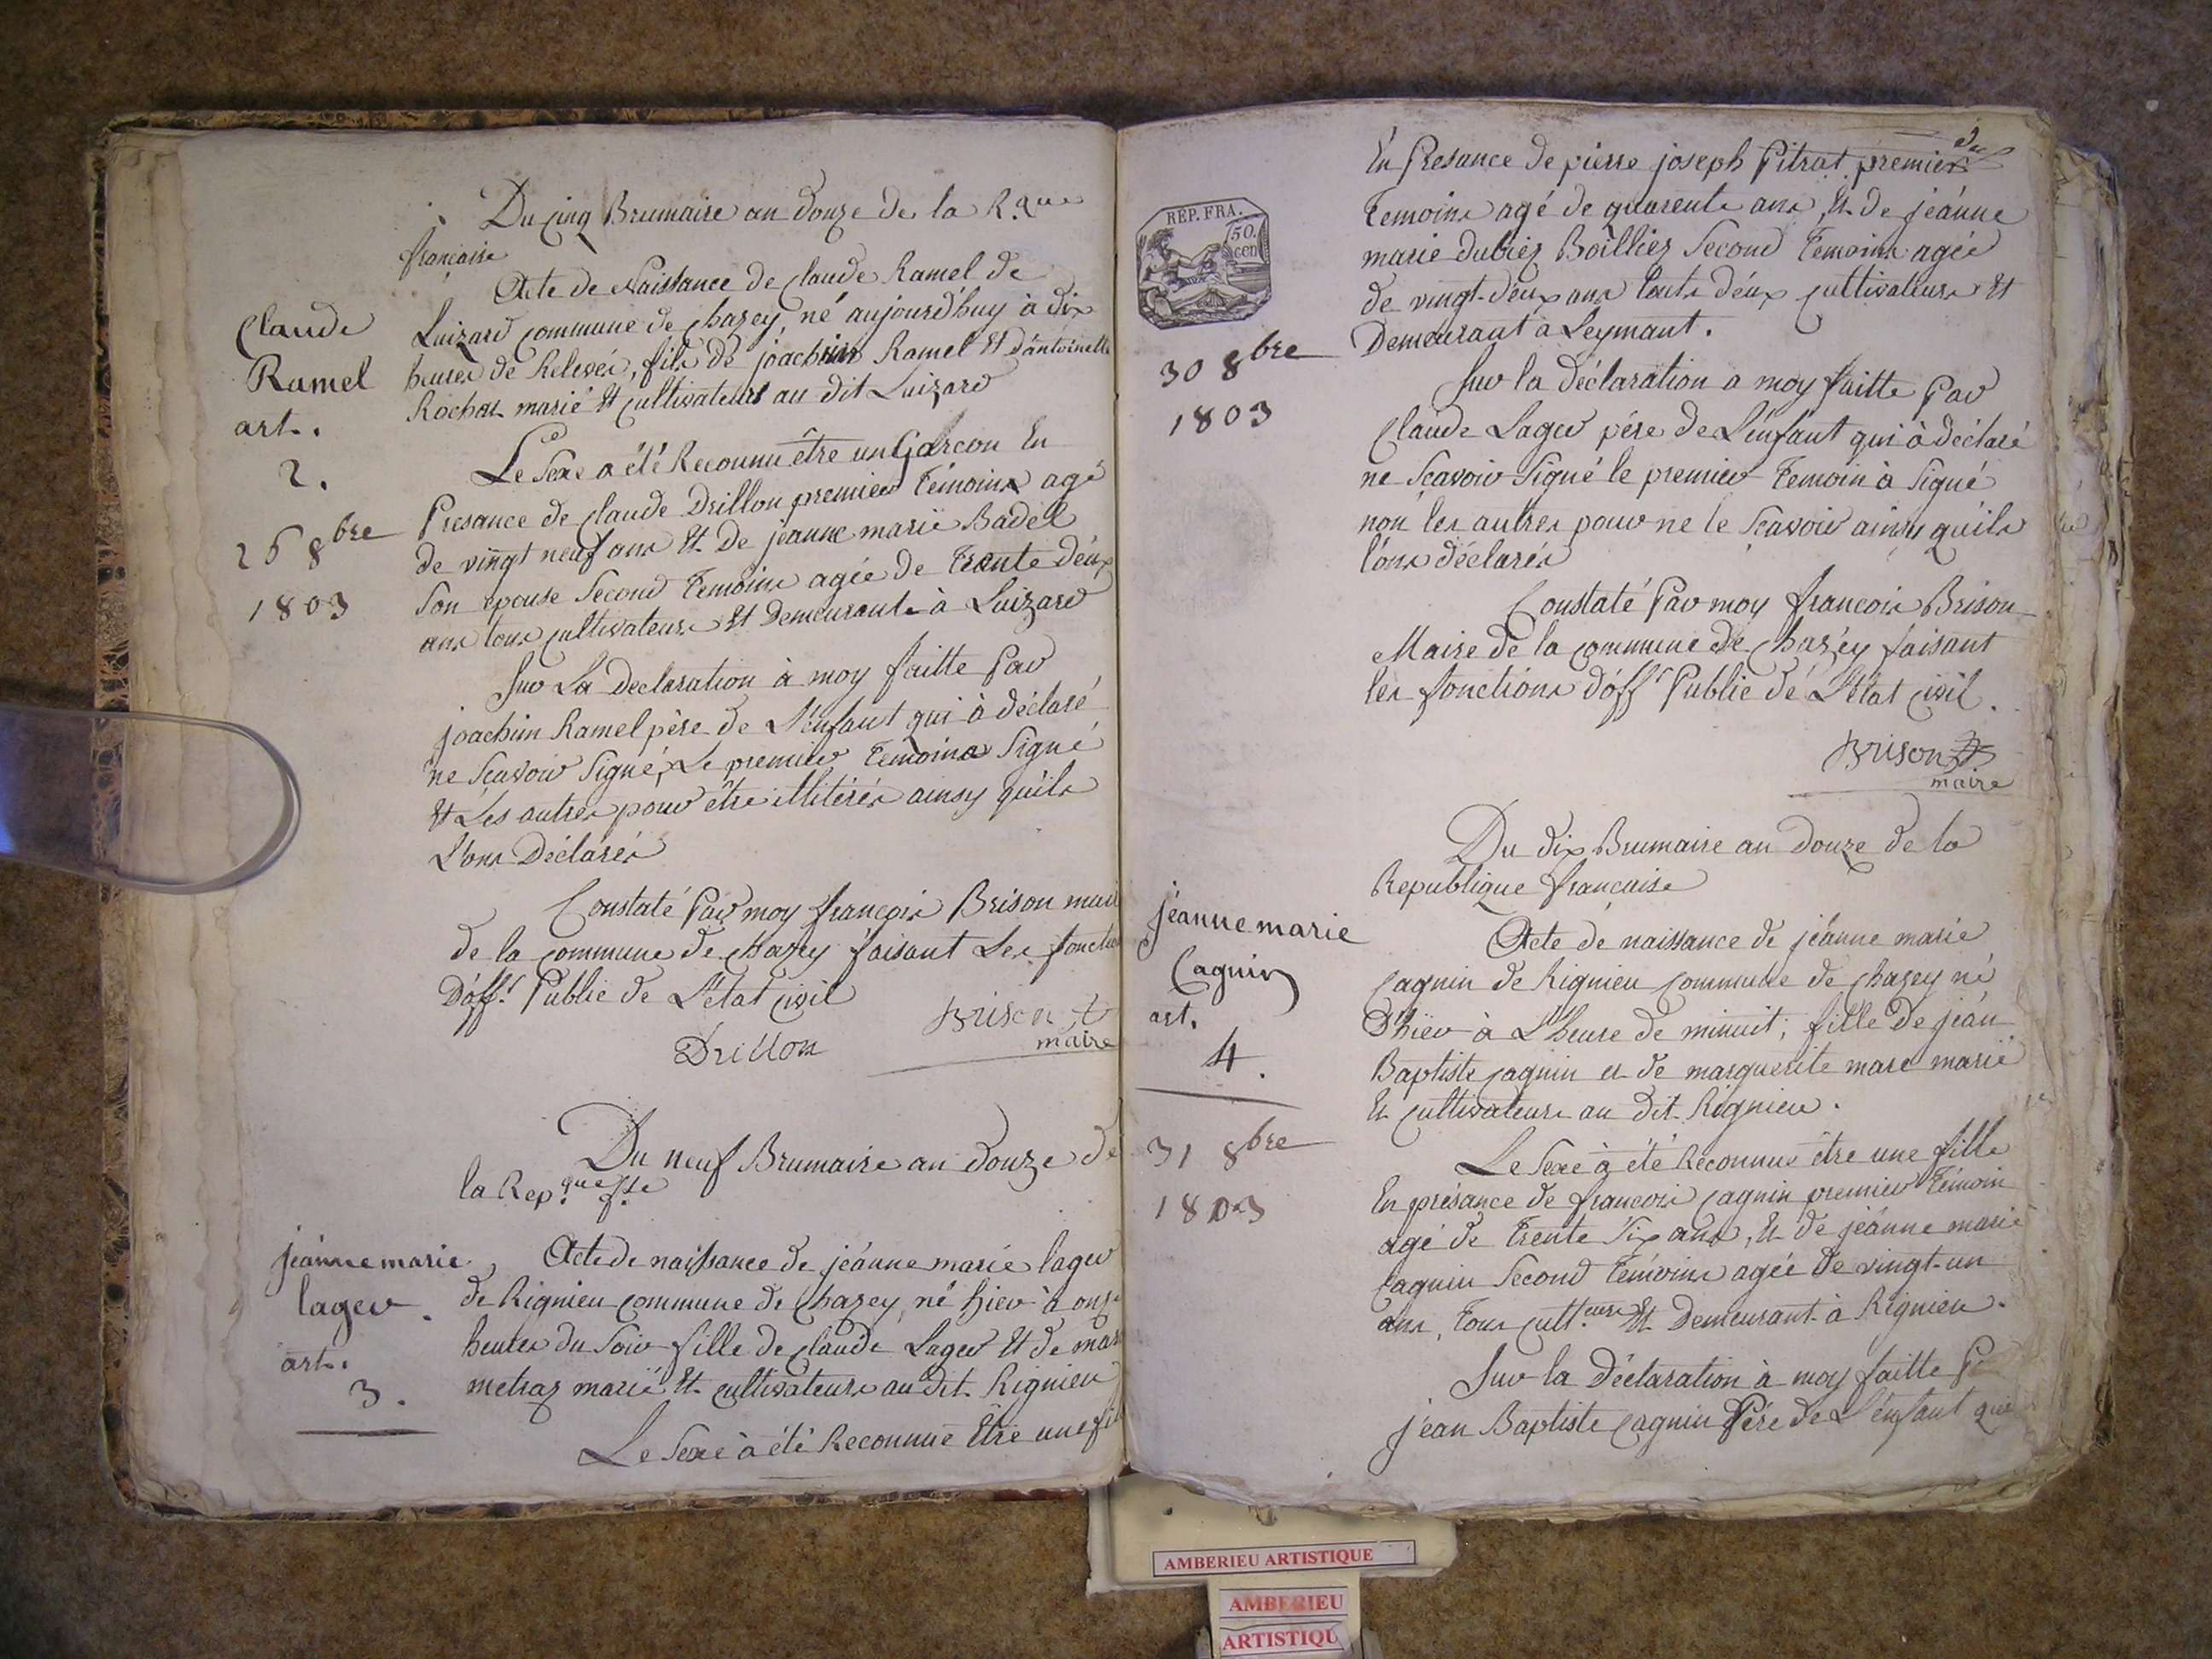 Du cinq Brumaire an douze de la R.que
française
Acte de Naissance de claude Ramel de
Luizard commune de chazey, né aujourd'huy à dix
heures de Relevée, fils de joachim Ramel Et d'antoinette
Rochas marié Et cultivateurs au dit Luizard
Claude
Ramel
art.
2.
8bre
1803
Le Sexe a été Reconnu être un Garcon En
Presance de claude Drillon premier Témoins agé
de vingt neuf ans Et De jeanne marie Badel
Son epouse Second Temoins agée de Trente deux
ans tous cultivateurs Et Demeurants à Luizard
Sur La Declaration à moy faitte Par
joachim Ramel père de L'enfant qui à déclaré
ne Scavoir Signé, Le premier Temoins Signé
Et Les autres pour être illitérés ainsy quils
L'ons Déclarés
Constaté Par moy françois Brison
de la commune de chazey faisant Les
D'off.r Public de L'état civil
Brison
maire
Drillon
Du neuf Brumaire an douze de
la Rep.que f.se
jeanne marie
lager.
art.
3.
Acte de naissance de jéanne marie lager
de Rignieu commune de chazey, né hier à onze
heures du Soir fille de claude Lager Et de
metraz marié Et cultivateurs au dit Rignieu
Le Sexe à été Reconnue Etre une
REP. FRA.
50.
cen
En Presance de pierre joseph Pitrat premier
Temoins agé de quarente ans, Et de jéanne
marie dubiez Boilliez Second Temoins agée
de vingt-deux ans touts déux cultivateurs Et
Demeurant à Leymant.
30 8bre
1803
Sur la déclaration a moy faitte Par
Claude Lager pére de L'enfant qui à déclaré
ne Scavoir Signé le premier Temoin à Signé
non les autres pour ne le Scavoir ainsy quils
l'ons déclarés
Constaté Par moy françois Brison
Maire de la commune de chazéy faisant
les fonctions d'off.r Public de L'Etat civil.
Brison
maire
Du dix Brumaire an douze de la
Republique française
jéanne marie
Cagnin
art.
4.
31 8bre
1803
Acte de naissance de jéanne marie
cagnin de Rignieu commune de chazey né
D'hier à L'heure de minuit, fille de jéan
Baptiste cagnin et de marguerite mare marié
Et cultivateurs au dit Rignieu.
Le Sexe à été Reconnue être une fille
En présance de francois cagnin premier Témoin
agé de Trente Six ans, Et de jéanne marie
cagnin Second Témoins agée de vingt-un
ans, Tous cult.eurs Et Demeurant à Rignieu.
Sur la Déclaration à moy faitte
jean Baptiste cagnin Pére de L'enfant qui
AMBERIEU ARTISTIQUE
AMBERIEU
ARTISTIQU